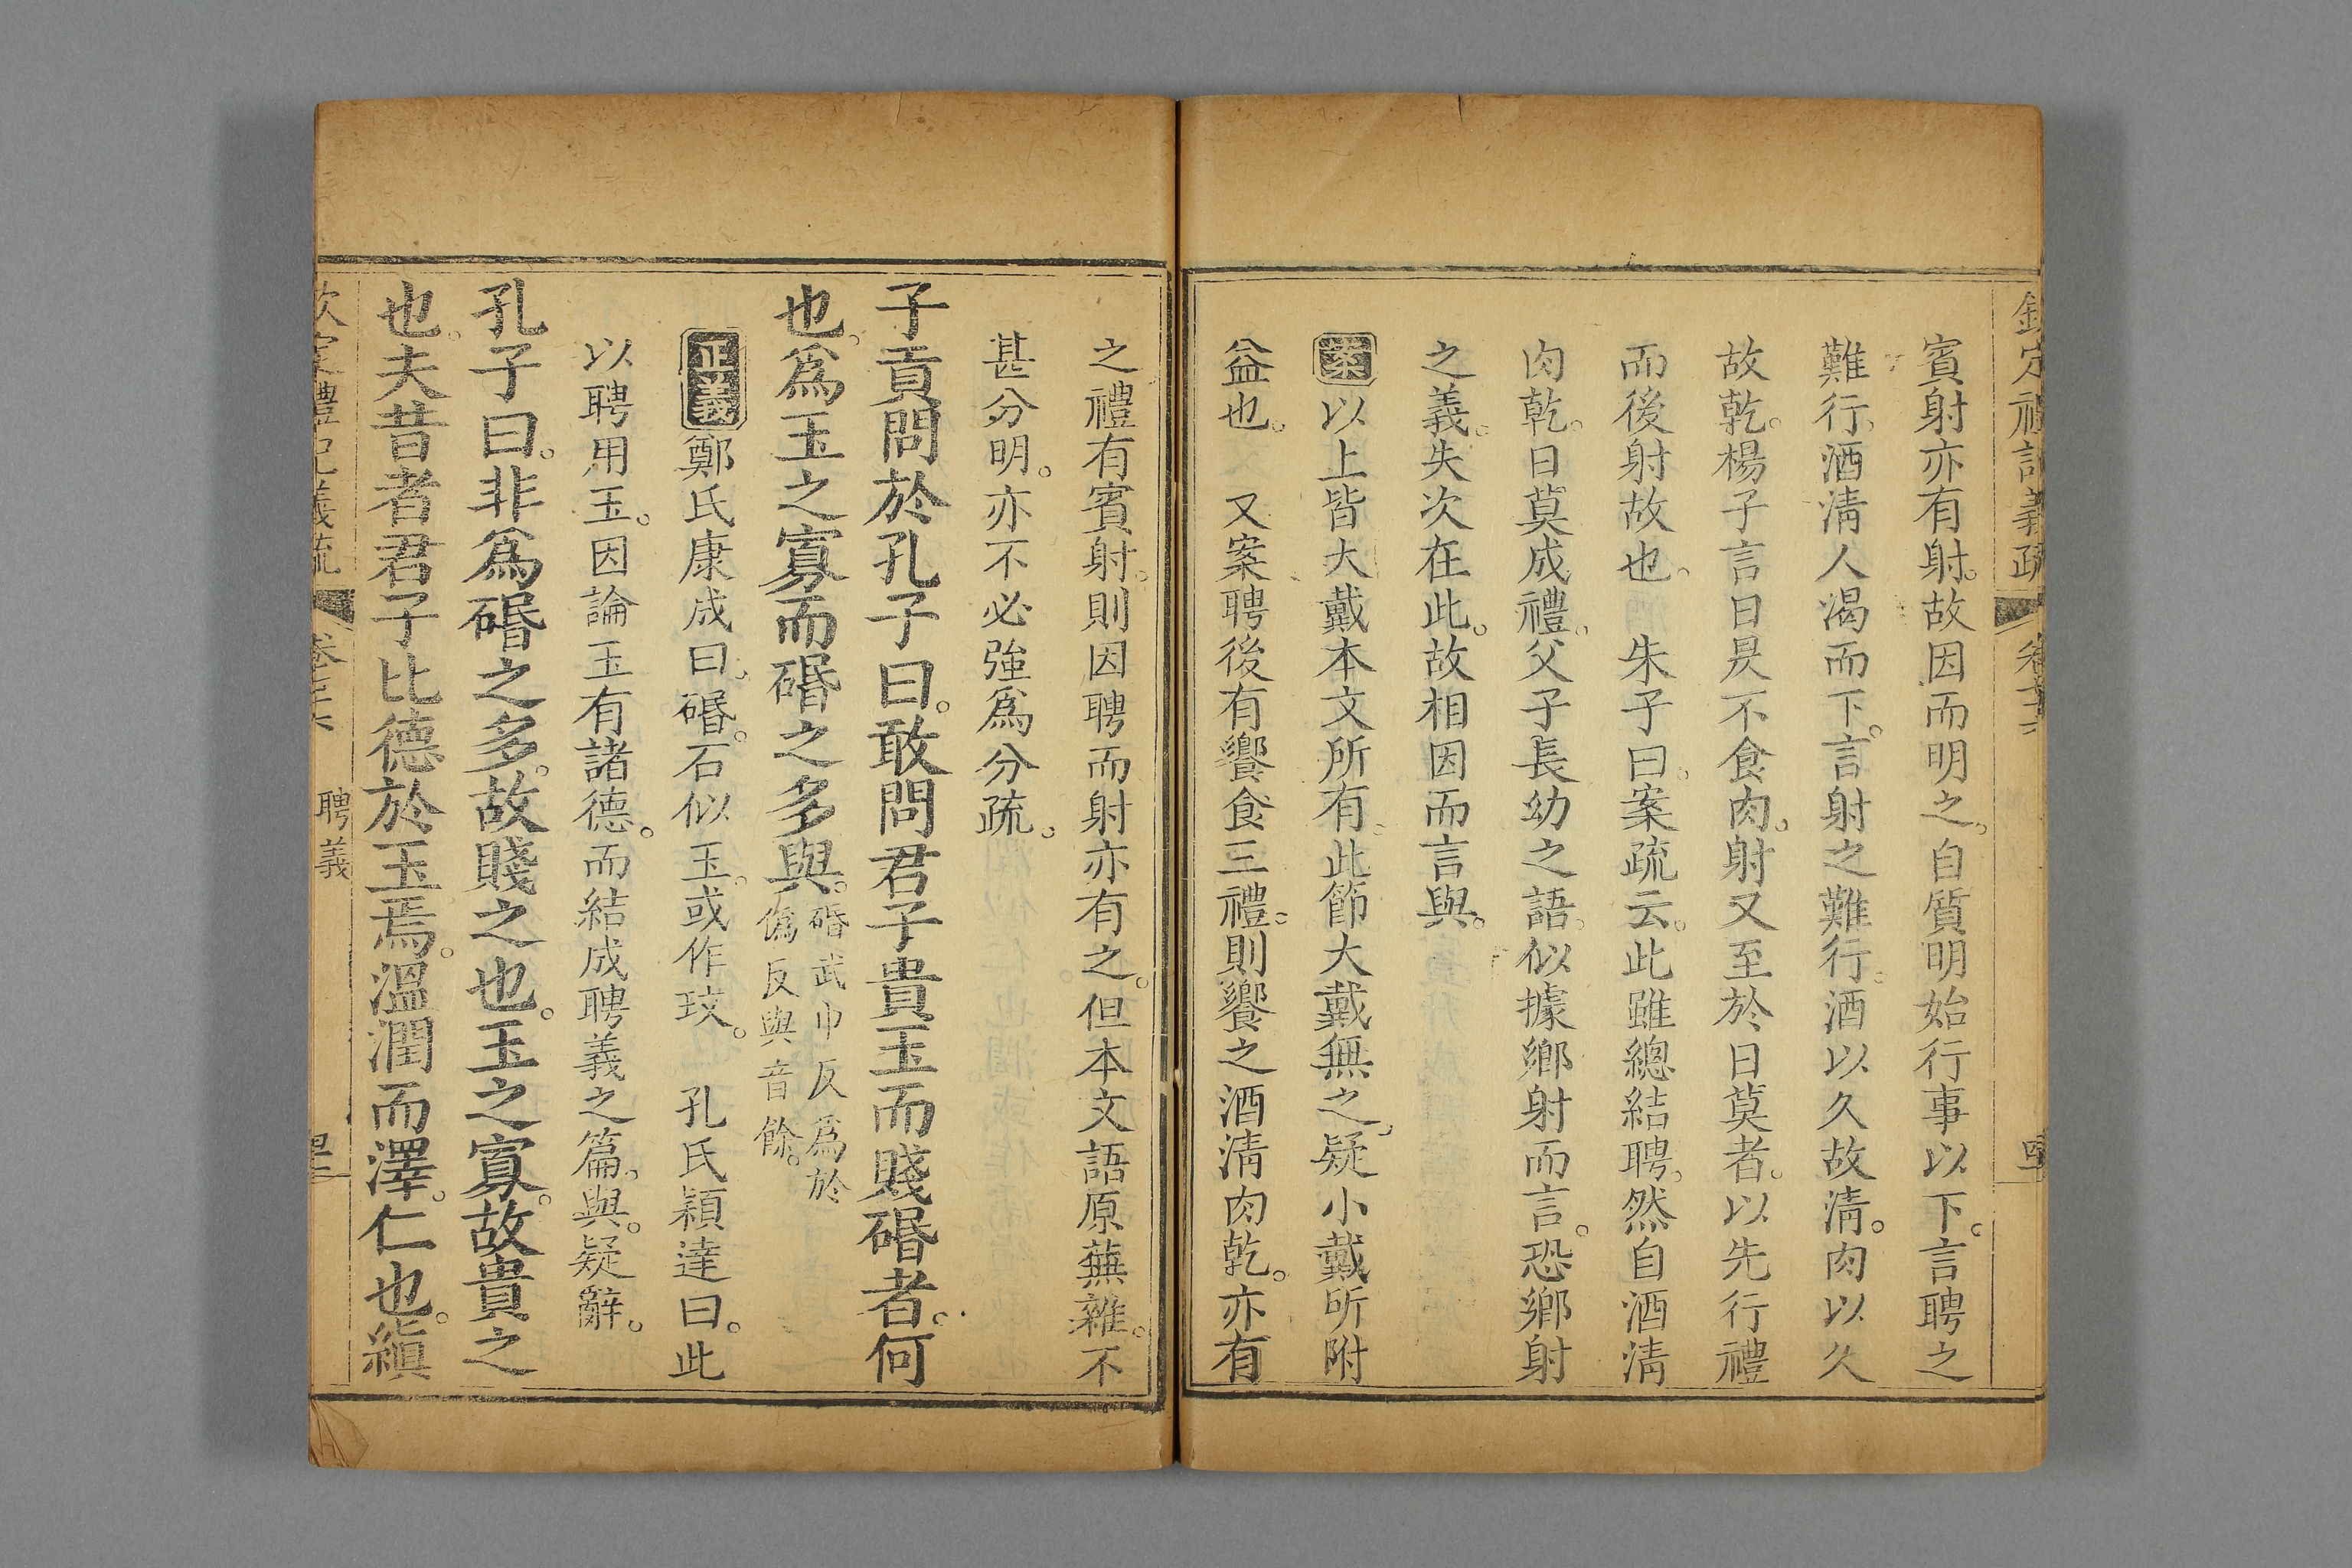 欽定禮記義疏 卷
賓射亦有射。故因而明之。自質明始行事以下。言聘之
難行。酒淸人渴而下。言射之難行。酒以久故淸。肉以久
故乾。楊子言日昃不食肉。射又至於日莫者。以先行禮
而後射故也。 朱子曰。案疏云。此雖總結聘。然自酒淸
肉乾。日莫成禮。父子長幼之語。似據鄉射而言。恐鄉射
之義。失次在此。故相因而言與。
案以上皆大戴本文所有。此節大戴無之。疑小戴所附
益也。 又案聘後有饗食三禮。則饗之酒淸肉乾。亦有
之禮有賓射。則因聘而射亦有之。但本文語原蕪雜。不
甚分明。亦不必強爲分疏。
子貢問於孔子曰。敢問君子貴玉而賤碈者。何
也。爲玉之寡而碈之多與。碈武巾反爲於
僞反與音餘。
正義鄭氏康成曰。碈。石似玉。或作玟。 孔氏穎達曰。此
以聘用玉。因論玉有諸德。而結成聘義之篇。與。疑辭。
孔子曰。非爲碈之多。故賤之也。玉之寡。故貴之
也。夫昔者君子比德於玉焉。溫潤而澤。仁也。縝
欽定禮記義疏 卷 聘義